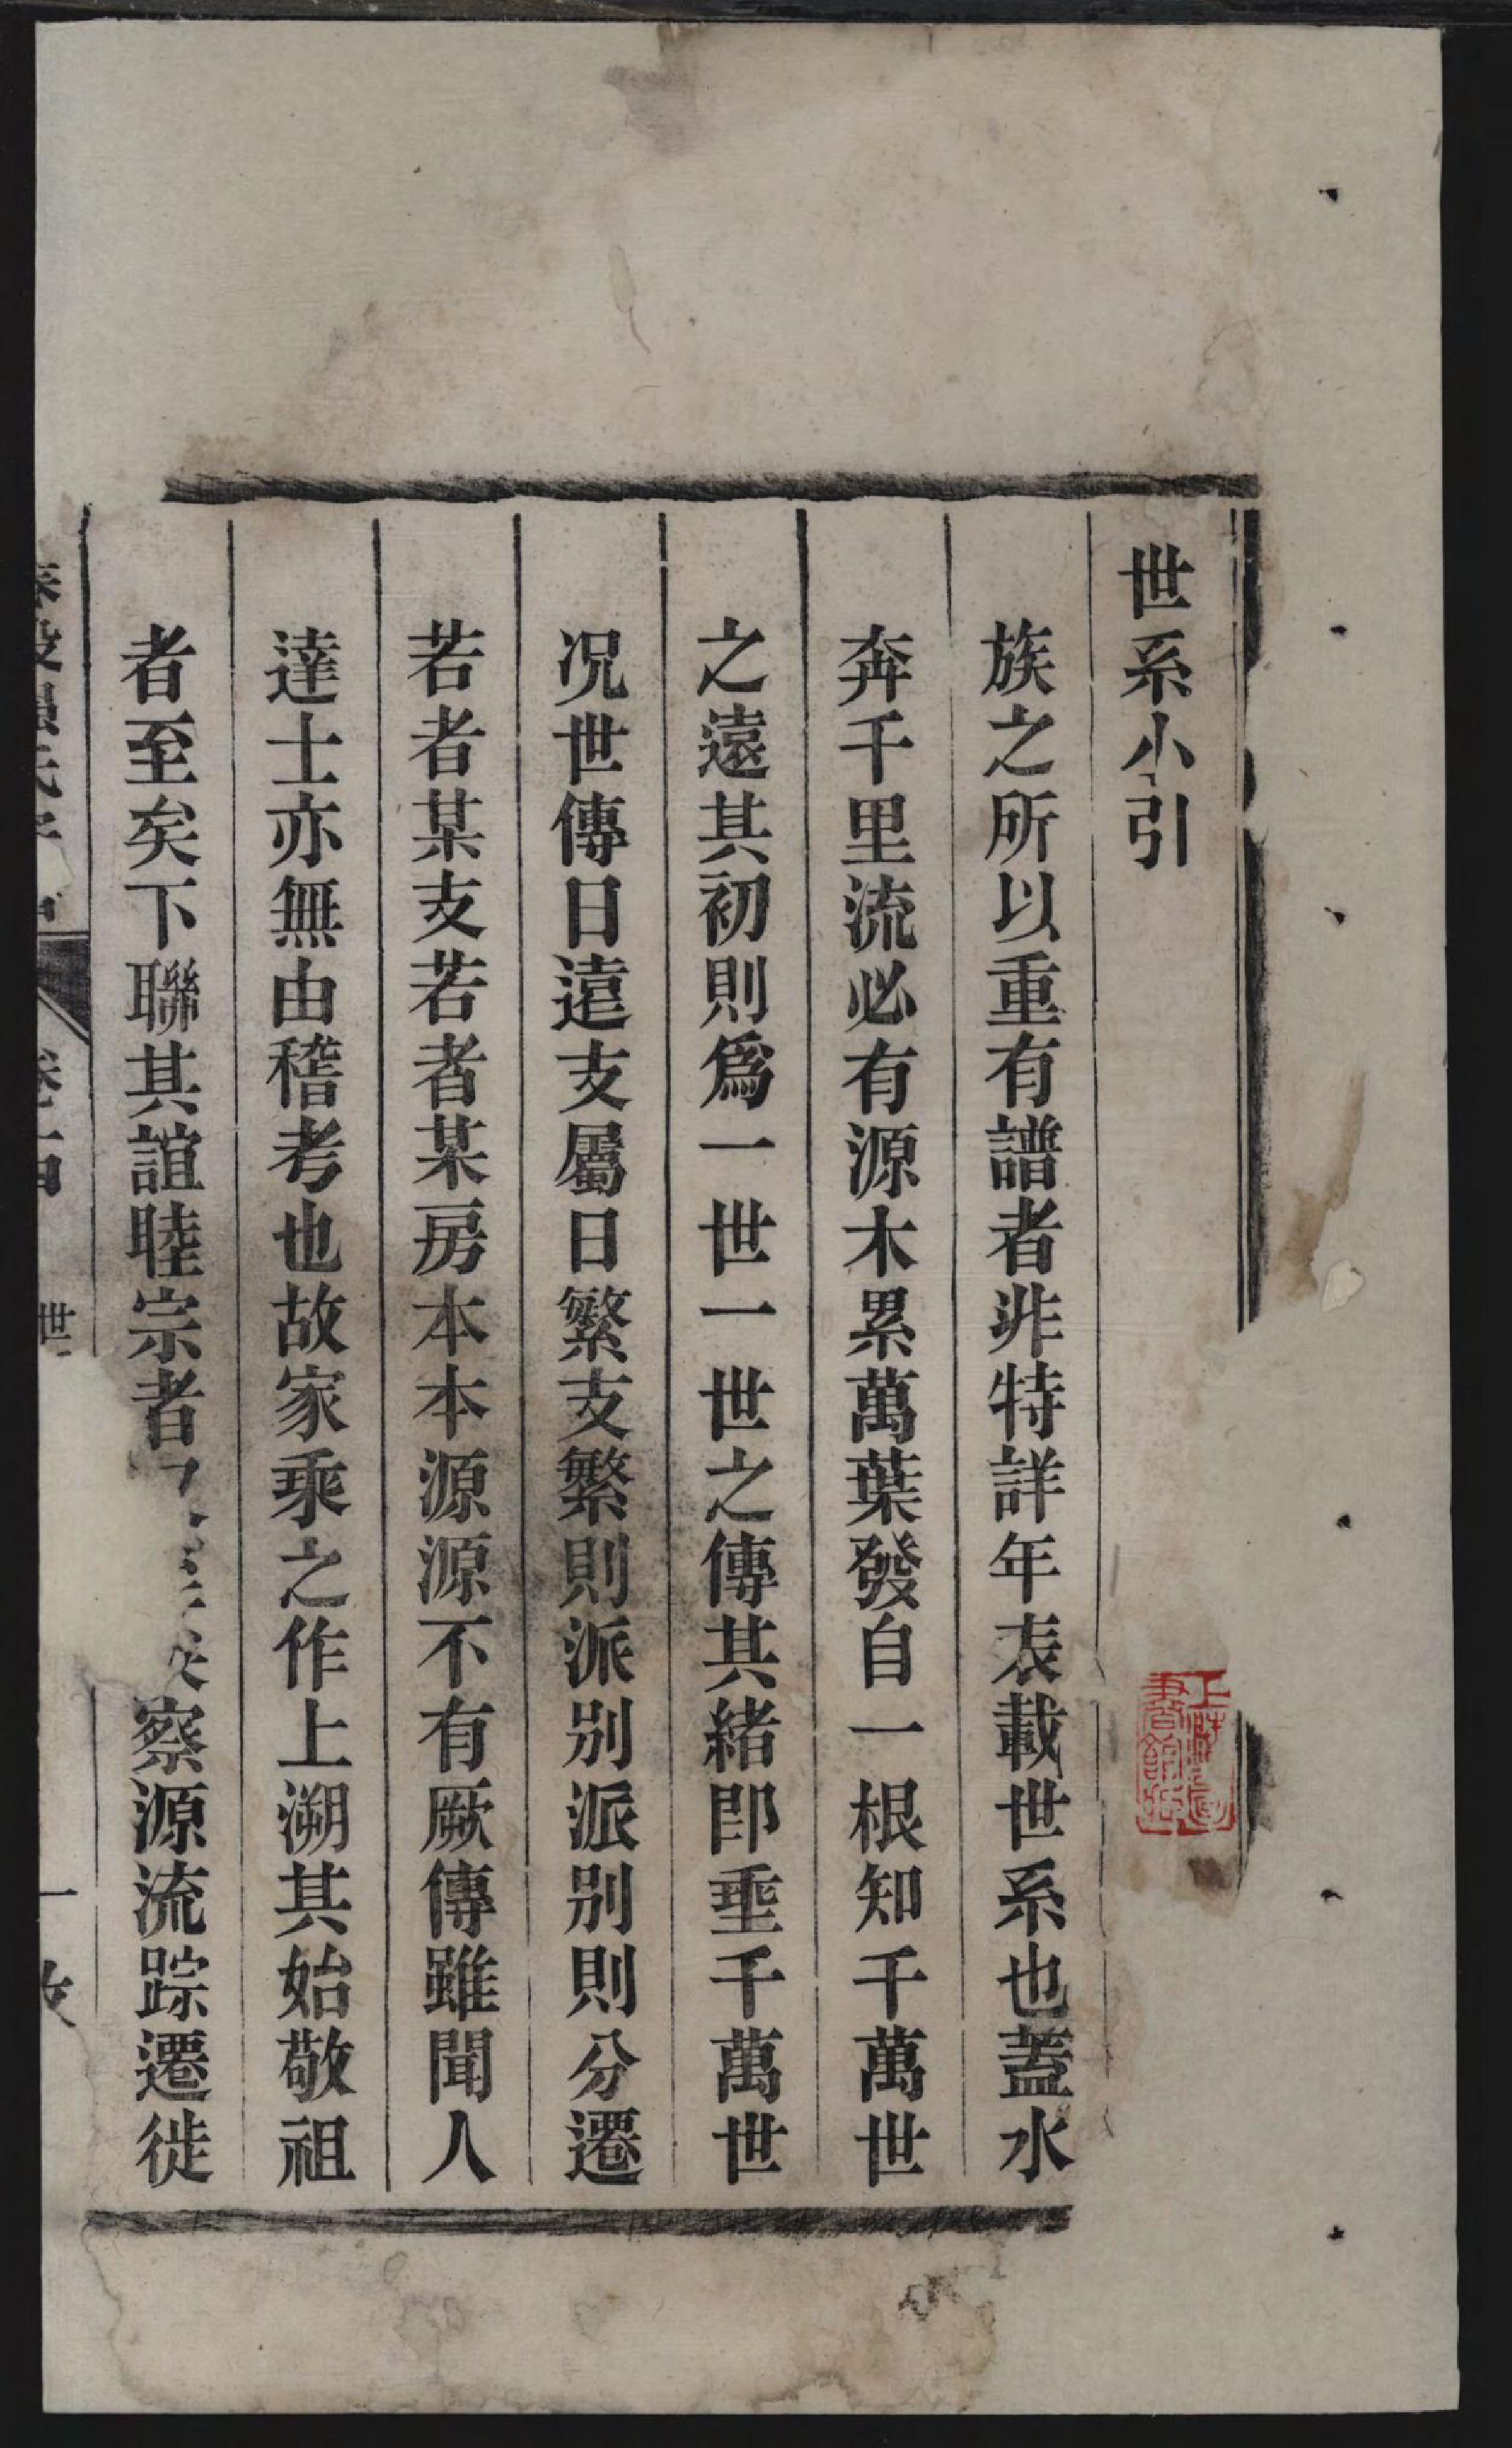 世系小引
族之所以重有譜者非特詳年表載世系也蓋水
奔千里流必有源木累萬葉發自一根知千萬世
之遠其初則爲一世一世之傳其緒卽垂千萬世
况世傳日遠支屬日繁支繁則派別派別則分遷
若者某支若者某房本本源源不有厥傳雖聞人
達士亦無由稽考也故家乘之作上溯其始敬祖
者至矣下聯其誼睦宗者察源流踪遷徙
世
一